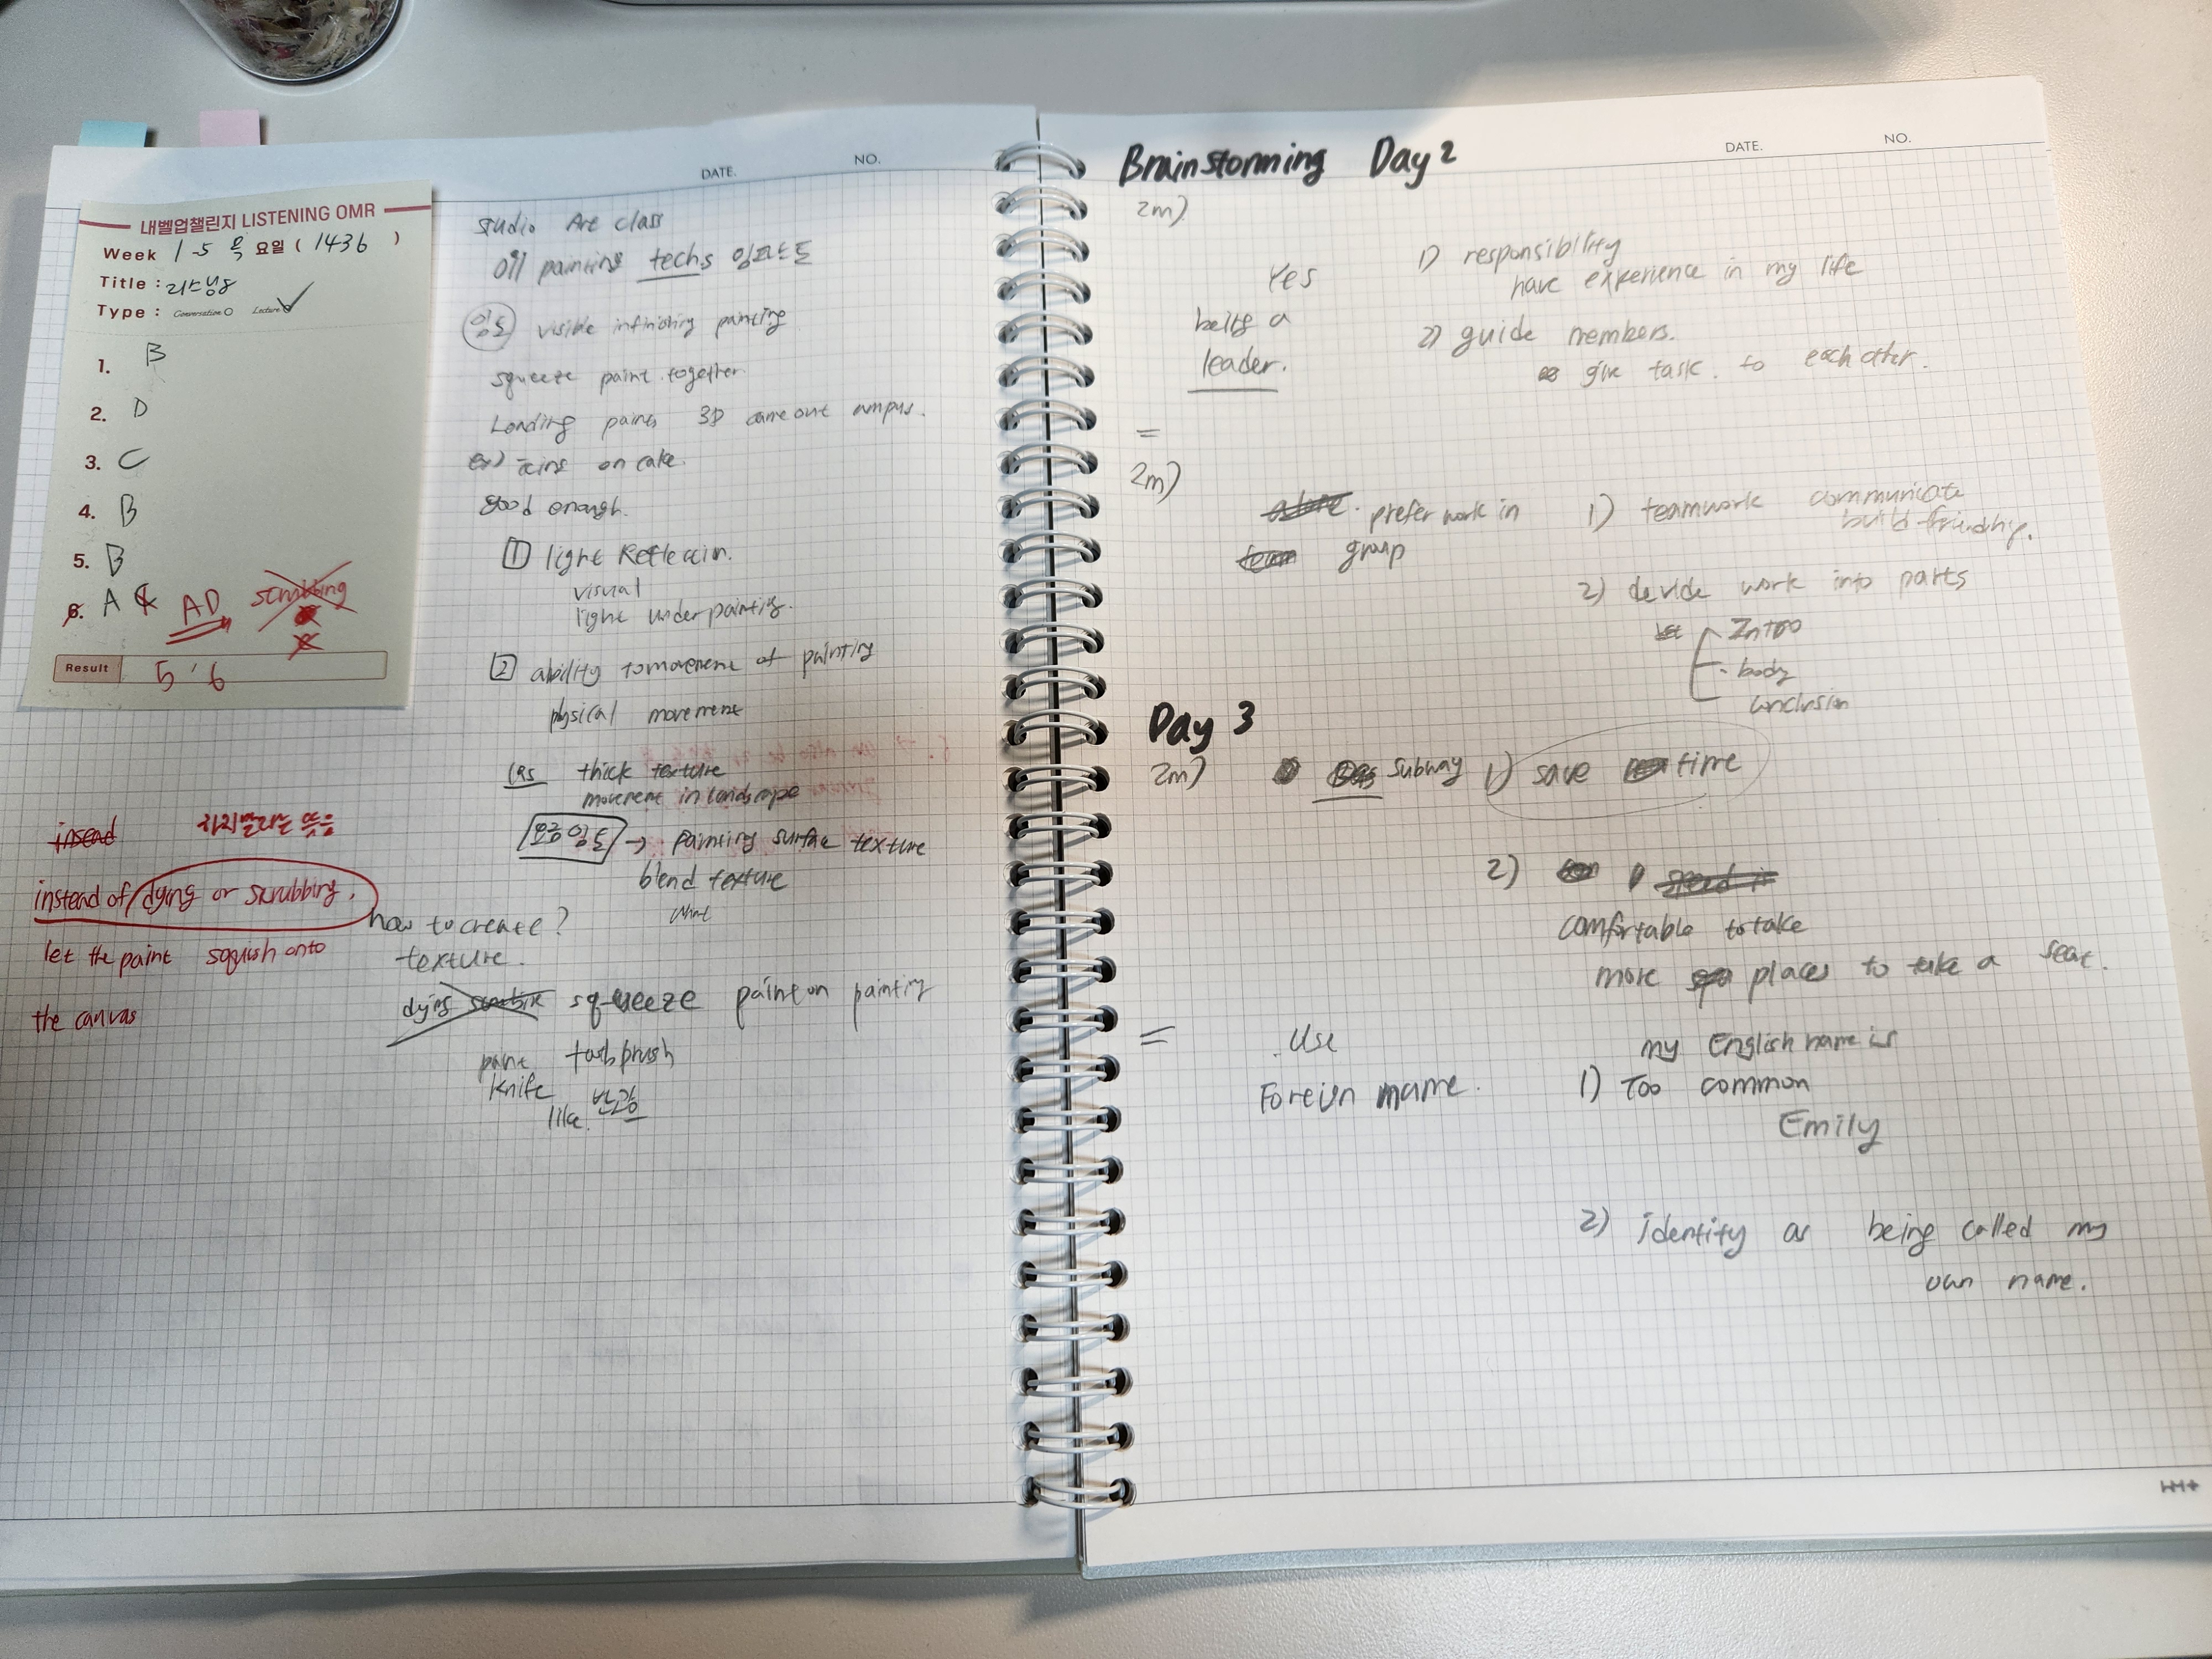 DATE. NO.
내벨업챌린지 LISTENING OMR
Week 1-5 목 요일 ( 1436 )
Title : 리스닝8
Type : Conversation Lecture
1. B
2. D
3. C
4. B
5. B
6. A AD scrubbing
Result 5/6
insead 하지말라는 뜻음
instead of dying or scrubbing,
let the paint squish onto
the canvas
studio Art class
Oil painting techs 임파스토
visible infinishing painting
squeeze paint together
Londing paints 3D came out
ex) icing on cake.
good enough.
1 light Reflection.
visual
light under painting.
2 ability to movement of painting
physical movement
thick texture
movement in landscape
→ painting surface texture
blend texture
what
how to create?
texture.
dying squeeze paint on painting
paint toothbrush
knife
like 반광
DATE. NO.
Brainstorming Day 2
2m)
Yes
being a
leader.
1) responsibility
have experience in my life
2) guide members.
give task to each other.
=
2m)
alone. prefer work in
team group
1) teamwork communicate
build friendship.
2) devide work into parts
Intro
body
conclusion
Day 3
2m) Bus subway 1) save time
2) speed is
comfortable to take
more places to take a seat.
=
Use
Foreign name.
my English name is
1) Too common
Emily
2) identity as being called my
own name.